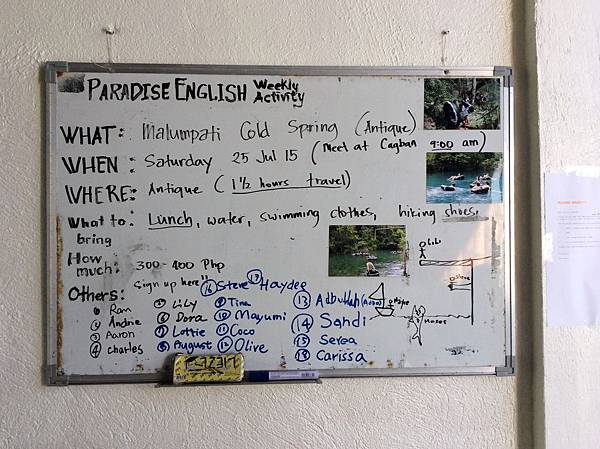 PARADISE ENGLISH Weekly Activity
WHAT: Malumpati Cold Spring (Antique)
WHEN: Saturday 25 Jul 15 (Meet at Cagban 9:00 am)
WHERE: Antique (1½ hours travel)
What to bring: Lunch, water, swimming clothes, hiking shoes,
How much: 300-400 Php
Others: Sign up here!!
① Ram
② Andrie
③ Aaron
④ charles
⑤ Lily
⑥ Dora
⑦ Lottie
⑧ August
⑨ Tina
⑩ Mayumi
⑪ Coco
⑫ Olive
⑬ Adbullah (Aboo)
⑭ Sandi
⑮ Serea
⑯ Steve
Haydee
Carissa
Lili
Steve
Pope
Moses